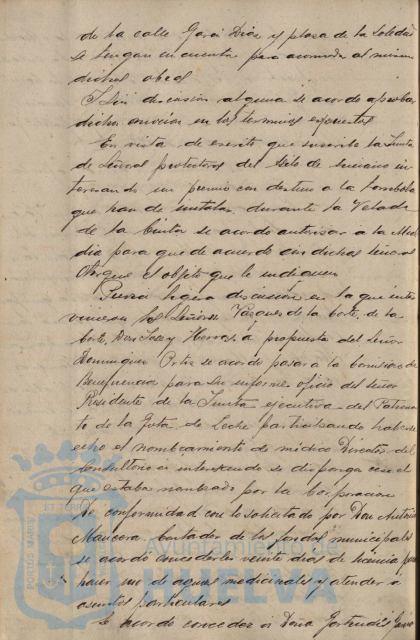 de la calle Garci Diaz y plaza de la Soledad
se tengan en cuenta para acomodar al mismo
dichas obras
Y sin discusion alguna se acordo aprobar
dicha mocion en los terminos expuestos
En vista de escrito que suscribe la Junta
de Señoras protectoras del Asilo de ancianos in
teresando un premio con destino a la tombola
que han de instalar durante la Velada
de la Cinta se acordo autorizar a la Alcal
dia para que de acuerdo con dichas Señoras
otorgue el objeto que le indiquen
Previa ligera discusion en la que inter
vinieron los Señores Vazquez de la Corte, de la
Corte, Don Jose y a propuesta del Señor
Dominguez Ortiz se acordo pasar a la Comision de
Beneficencia para su informe oficio del Señor
Presidente de la Junta ejecutiva del Patrona
to de la Gota de Leche participando haberse
echo el nombramiento de médico Director del
Consultorio e interesando se disponga cese el
que estaba nombrado por la Corporacion
De conformidad con lo solicitado por Don Antonio
Mancera Contador de los fondos municipales
se acordo concederle veinte dias de licencia para
hacer uso de aguas medicinales y atender a
asuntos particulares
Se acordo conceder a Doña Gertrudis
PORTUS MARIS
ET TERRÆ
Ayuntamiento de
HUELVA